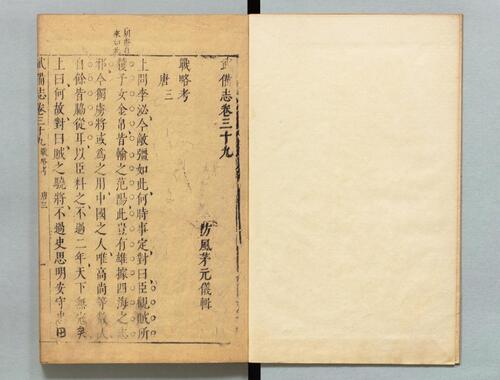 武備志卷三十九
防風茅元儀輯
戰略考
唐三
上問李泌今敵彊如此何時事定對曰臣觀賊所
獲子女金帛皆輸之范陽此豈有雄據四海之志
邪今獨虜將或為之用中國之人唯高尚等數人
自餘皆脇從耳以臣料之不過二年天下無寇矣
上曰何故對曰賊之驍將不過史思明安守忠田
武備志卷三十九 戰略考 唐三 一